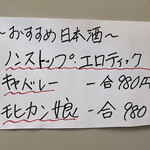 〜おすすめ日本酒〜
ノンストップ.エロティック
キャバレー 一合980円
モヒカン娘 一合 980